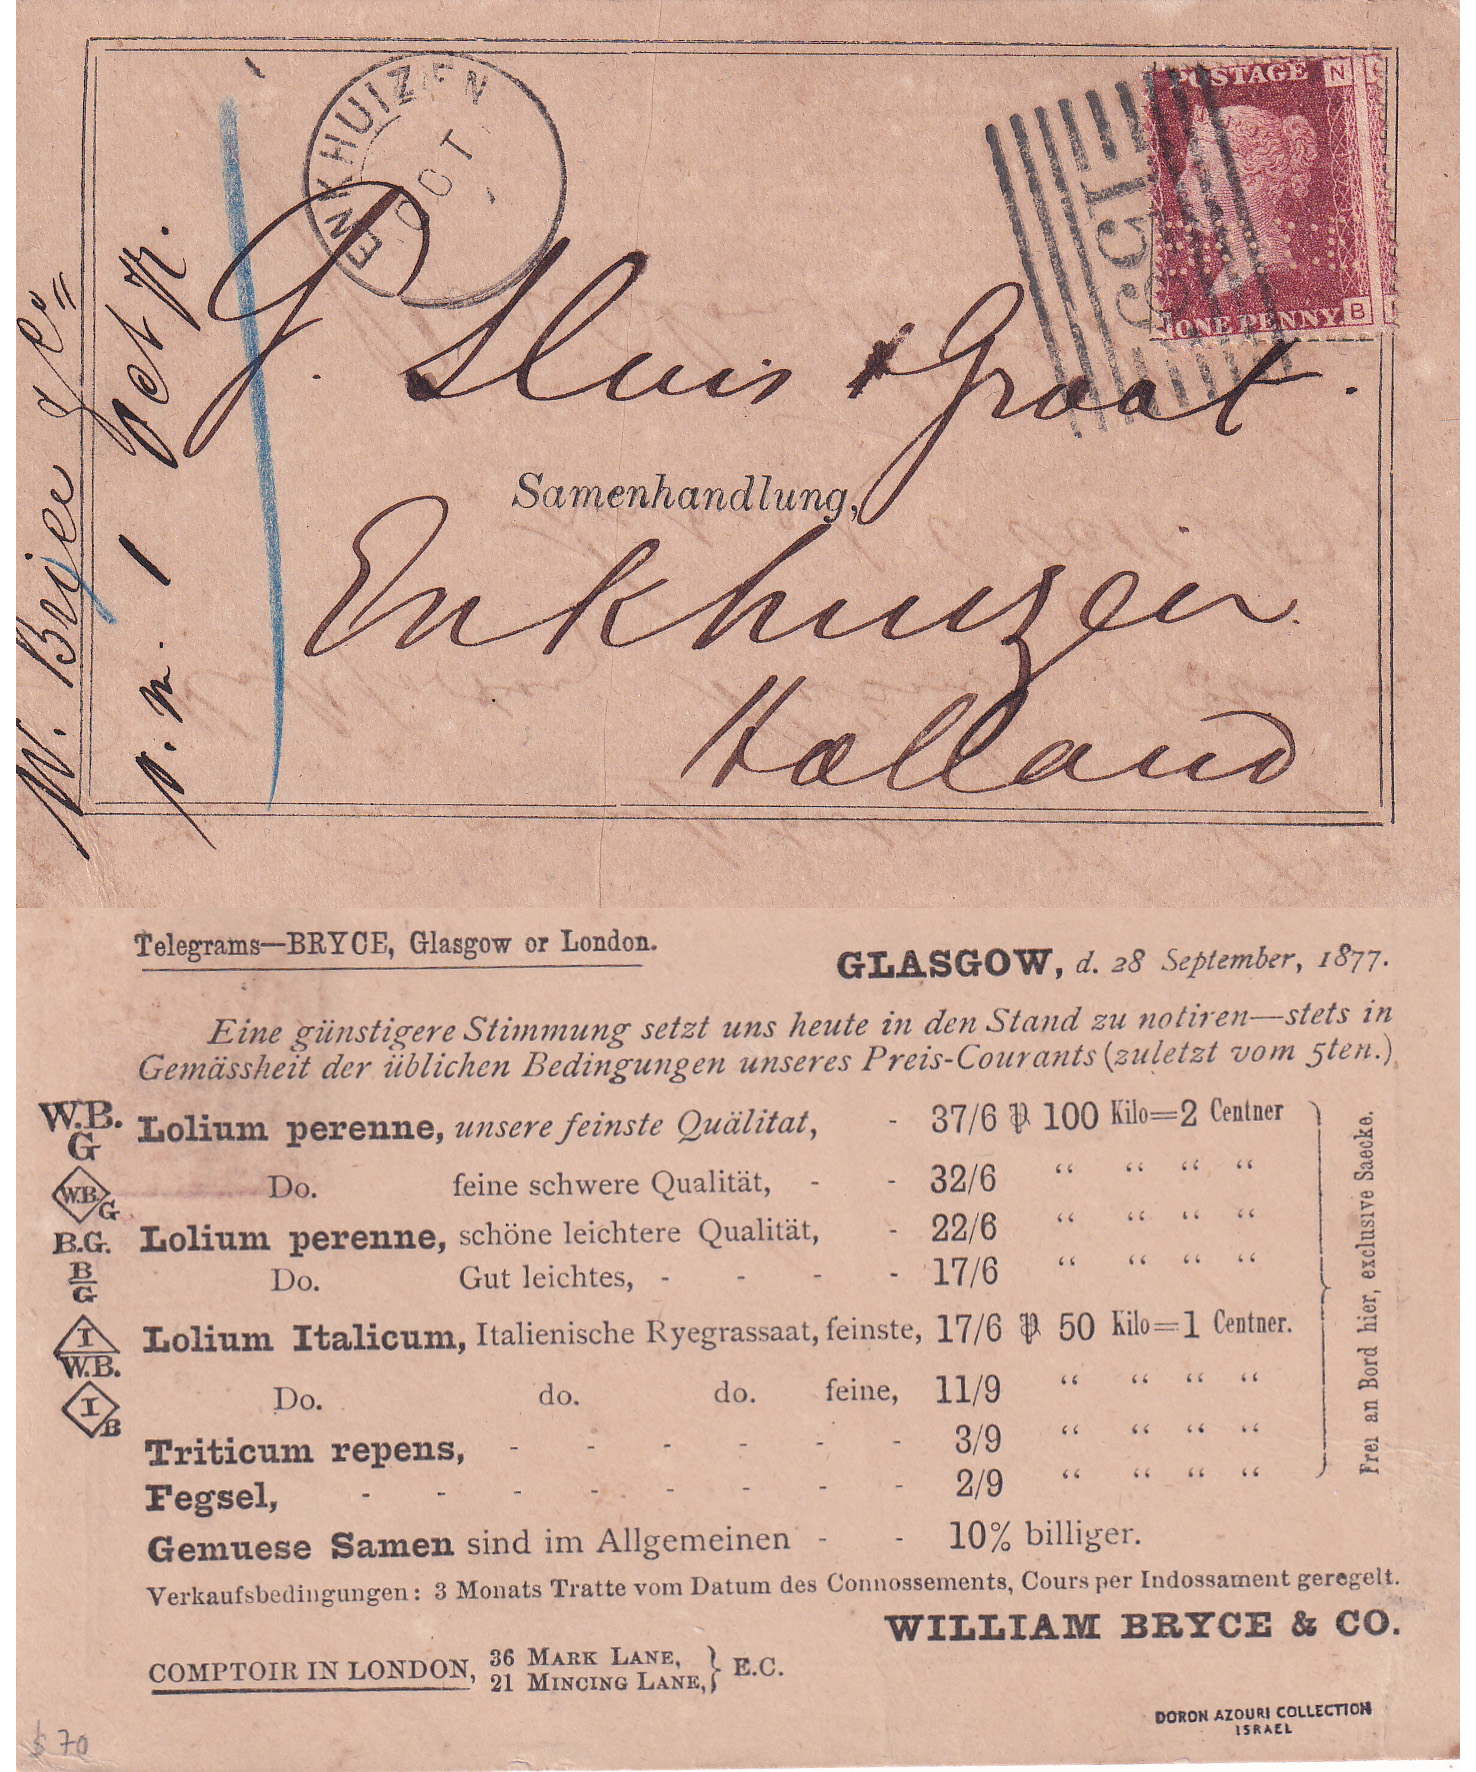 POSTAGE
N
ONE PENNY
B
159
ENKHUIZEN
OCT
G. Sluis & Groot.
Samenhandlung,
Enkhuizen
Holland
p. m. 1 Oct
Telegrams—BRYCE, Glasgow or London.
GLASGOW, d. 28 September, 1877.
Eine günstigere Stimmung setzt uns heute in den Stand zu notiren—stets in
Gemässheit der üblichen Bedingungen unseres Preis-Courants (zuletzt vom 5ten.)
W.B. G Lolium perenne, unsere feinste Quälitat, - 37/6 ⅌ 100 Kilo=2 Centner
W.B. G Do. feine schwere Qualität, - - 32/6 “ “ “ “
B.G. Lolium perenne, schöne leichtere Qualität, - 22/6 “ “ “ “
B G Do. Gut leichtes, - - - - 17/6 “ “ “ “
I W.B. Lolium Italicum, Italienische Ryegrassaat, feinste, 17/6 ⅌ 50 Kilo=1 Centner.
I B Do. do. do. feine, 11/9 “ “ “ “
Triticum repens, - - - - - - 3/9 “ “ “ “
Fegsel, - - - - - - - - 2/9 “ “ “ “
Frei an Bord hier, exclusive Saecke.
Gemuese Samen sind im Allgemeinen - - 10% billiger.
Verkaufsbedingungen: 3 Monats Tratte vom Datum des Connossements, Cours per Indossament geregelt.
WILLIAM BRYCE & CO.
COMPTOIR IN LONDON, 36 MARK LANE, 21 MINCING LANE, } E.C.
DORON AZOURI COLLECTION
ISRAEL
$ 70